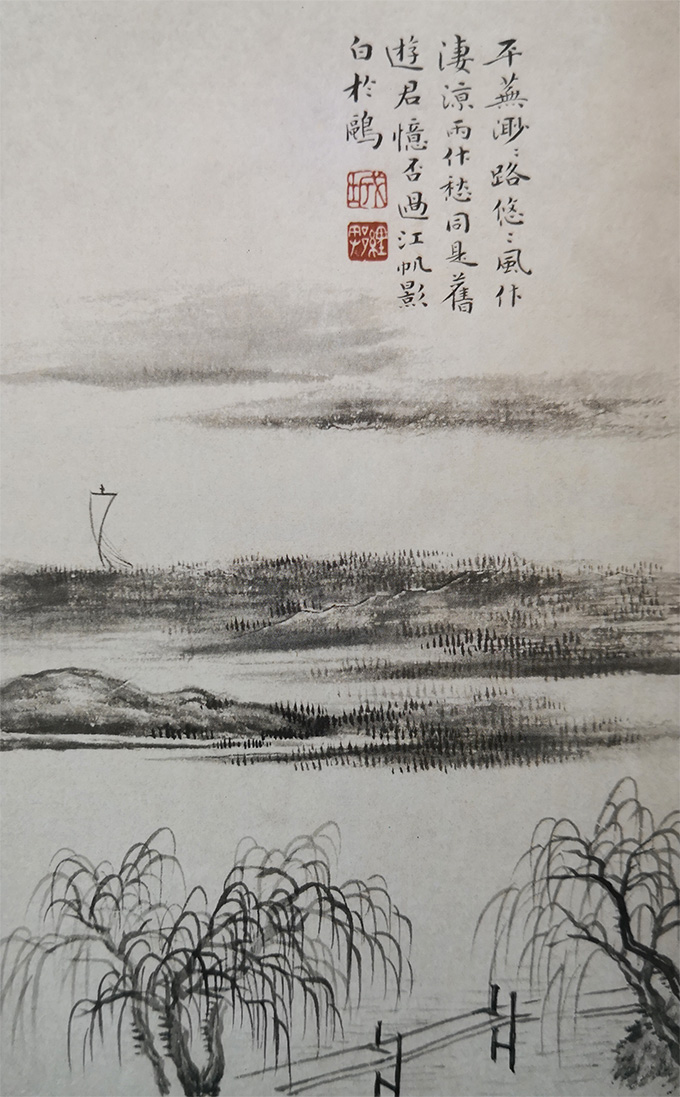 平蕪渺〻路悠〻風作
淒涼雨作愁同是舊
遊君憶否過江帆影
白於鷗